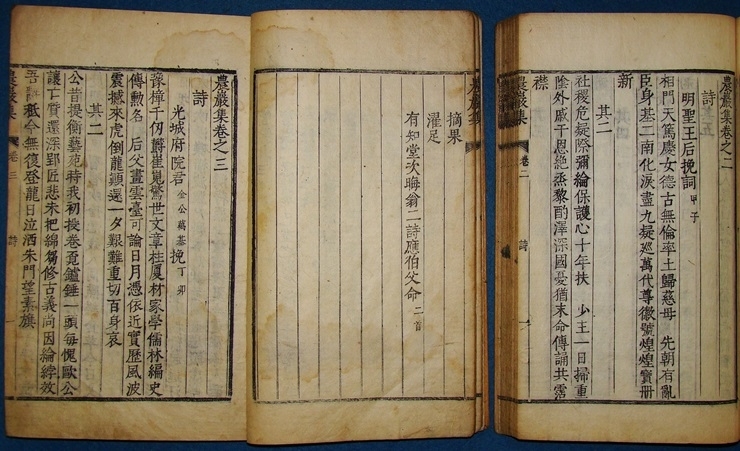 農巖集卷之二
詩
明聖王后挽詞 甲子
相門天篤慶女德古無倫率土歸慈母 先朝有亂
臣身基二南化淚盡九疑巡萬代尊徽號煌煌寶冊
新
其二
社稷危疑際彌綸保護心十年扶 少王一日掃重
陰外戚干恩絶烝黎酌澤深國憂猶末命傳誦共霑
襟
農巖集 卷二 詩
摘果
濯足
有知堂次晦翁二詩應伯父命 二首
農巖集
農巖集卷之三
詩
光城府院君 金公萬基 挽 丁卯
豫樟千仞鬱崔嵬驚世文章柱廈材家學儒林編史
傳勳名 后父畫雲臺可論日月憑依近實歷風波
震撼來虎倒龍顚還一夕艱難重切百身哀
其二
公昔提衡藝苑時我初投卷覓鑪錘一頭每愧歐公
讓下質還深郢匠悲未把綿蒭修古義向因綸綍效
吾秪今無復登龍日泣洒朱門望素旗
農巖集 卷三 詩